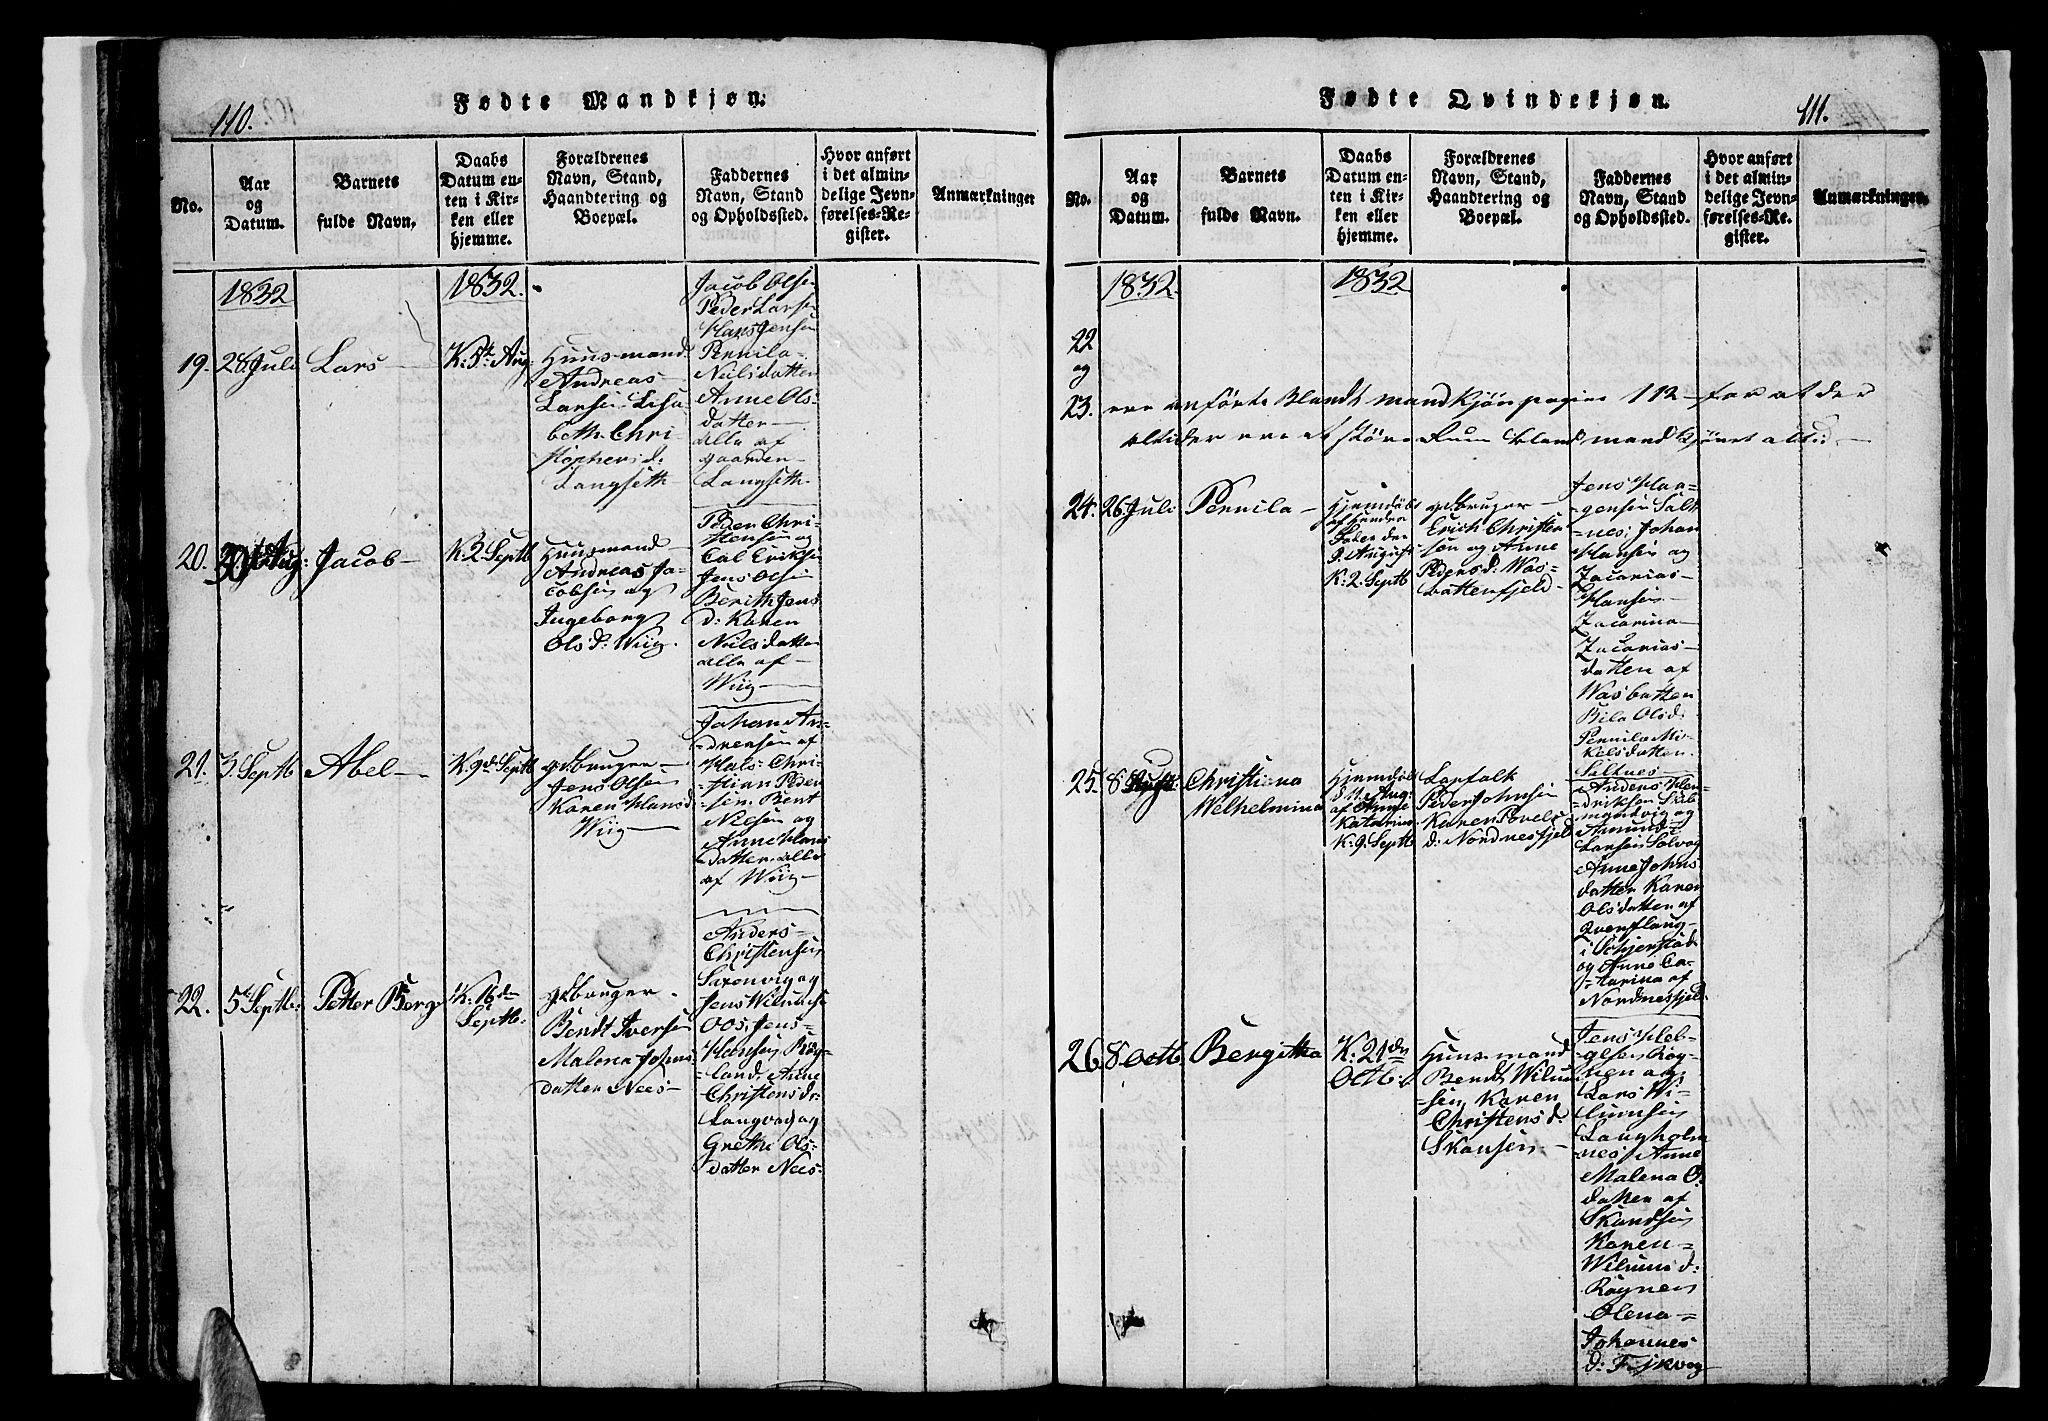 110.
Fødte Mandkjøn.
No.
Aar
og
Datum.
Barnets
fulde Navn.
Daabs
Datum en-
ten i Kir-
ken eller
hjemme.
Forældrenes
Navn, Stand,
Haandtering og
Boepæl.
Faddernes
Navn, Stand
og Opholdssted.
Hvor anført
i det almin-
delige Jevn-
førelses-Re-
gister.
Anmærkninger
1832
1832.
19.
28 Juli
Lars
K: 5te Aug
Huusmand
Andreas
Larsen Lisa
beth Chri-
stophersd:
Langseth
Jacob Olsen
Peder Larsen
Hans Jensen
Pernila
Nielsdatter
Anne Ols-
datter
alle af
gaarden
Langseth
20.
30 Aug:
Jacob
K: 2 Septb
Huusmand
Andreas Ja-
cobsen og
Ingeborg
Olsd: Wiig.
Peder Chri-
stensen og
Cal Eriksen
Jens Olsen
Berith Jens
d: Karen
Nielsdatter
alle af
Wiig
21.
3 Septb
Abel
K: 9de Septb
gdbruger
Jens Olsen
Karen Hansd
Wiig
Johan An-
drensen af
Hals Chri-
stian Peder
sen. Bent
Nilsen og
Anne Hans
datter alle
af Wiig
22.
5te Septb:
Petter Berg
K: 16de
Septb:
gdbruger
Bendt Iversen
Malena Johns
datter Nees
Anders
Christensen
Saxenvig og
Jens Wilumsen
Oos, Jens
Hansen Røg-
land, Anne
Christensdr
Langvag og
Grethe Ols-
datter Nees
111.
Fødte Qvindekjøn.
No.
Aar
og
Datum.
Barnets
fulde Navn.
Daabs
Datum en-
ten i Kir-
ken eller
hjemme.
Forældrenes
Navn, Stand,
Haandtering og
Boepæl.
Faddernes
Navn, Stand
og Opholdssted.
Hvor anført
i det almin-
delige Jevn-
førelses-Re-
gister.
Anmærkninger.
1832.
1832
22
og
23. ere anførte Blandt mandkjön pagina 112 for at der
altider ere et störe Rum bland mandkjönet altid
24.
26 Juli
Pernila
Hjemdöbt
af
fader den
9. August
K: 2. Septb
gdbruger
Erich Christen
sen og Anne
Pedersd: Was-
batterfjeld
Jens Haa-
gensen Salt
nes, Johan
Hansen og
Zacarias
Hansen
Zacarina
Zacarias
datter af
Wasbatten
Bila Olsd:
Pernila Mi-
kelsdatter
Saltnes
25.
8 August
Christiana
Welhelmina
Hjemdöbt
d 11 Aug:
af Anne
Katarina
K: 9. Septb
Lapfolk
Peder Johnsen
Karen Povels
d: Nordnesfjeld
Anders Hen-
driksen Skib
mandvig og
Amund
Larsen Solvag
Anne Johns
datter Karen
Olsdatter af
Qvenflaug
i Schjerstad
og Anne Ca-
tarina af
Nordnesfjeld
26.
8 Octb.
Bergitha
K: 21de
Octb:
Huusmand
Bendt Wilum
sen, Karen
Christens d:
Skansen
Jens Hel-
gesen Røg-
nen og
Lars Wi-
lumsen
Langholm
nes, Anne
Malena O.
datter af
Skandsen
Karen
Wilums d:
Røgnen
Olena
Johannes
d: Fiskvag